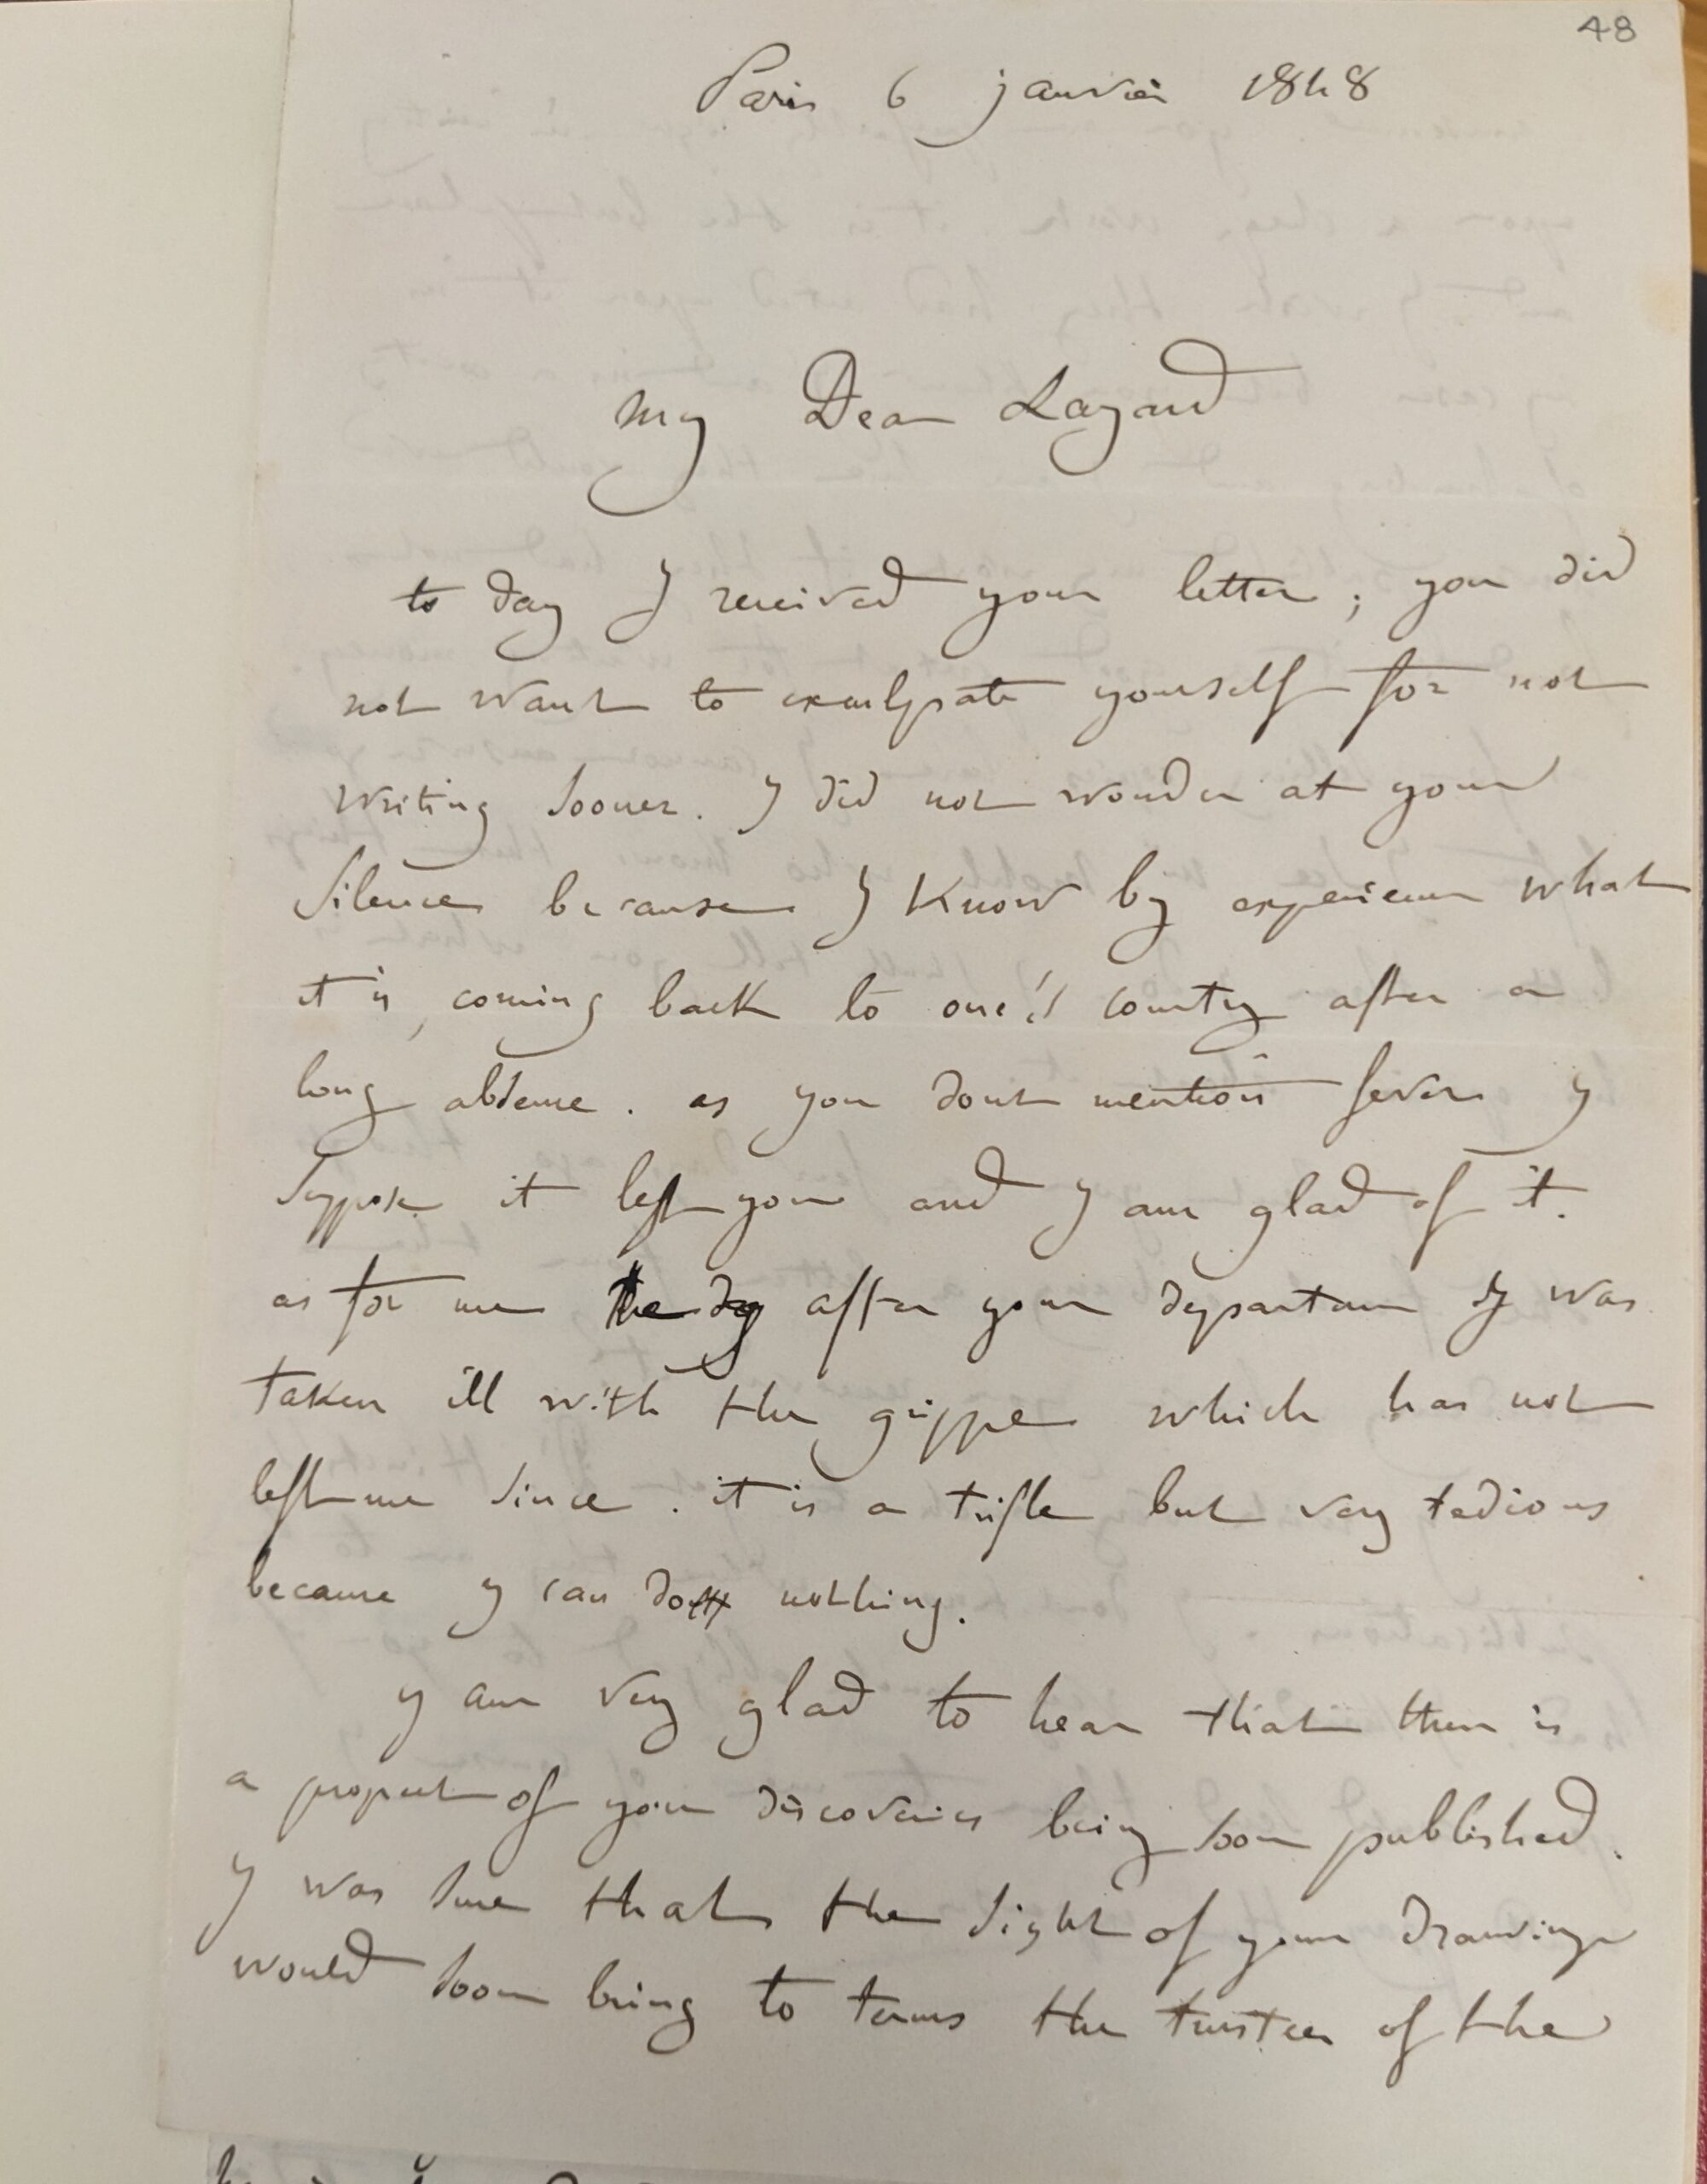 48
Paris 6 janvier 1848
My Dear Layard
to day I received your letter; you did
not want to exculpate yourself for not
writing sooner. I did not wonder at your
silence because I know by experience what
it is, coming back to one's country after a
long absence. as you dont mention fever I
suppose it left you and I am glad of it.
as for me the day after your departure I was
taken ill with the grippe which has not
left me since. it is a trifle but very tedious
because I can do nothing.
I am very glad to hear that there is
a prospect of your discoveries being soon published.
I was sure that the sight of your drawings
would soon bring to terms the trustees of the